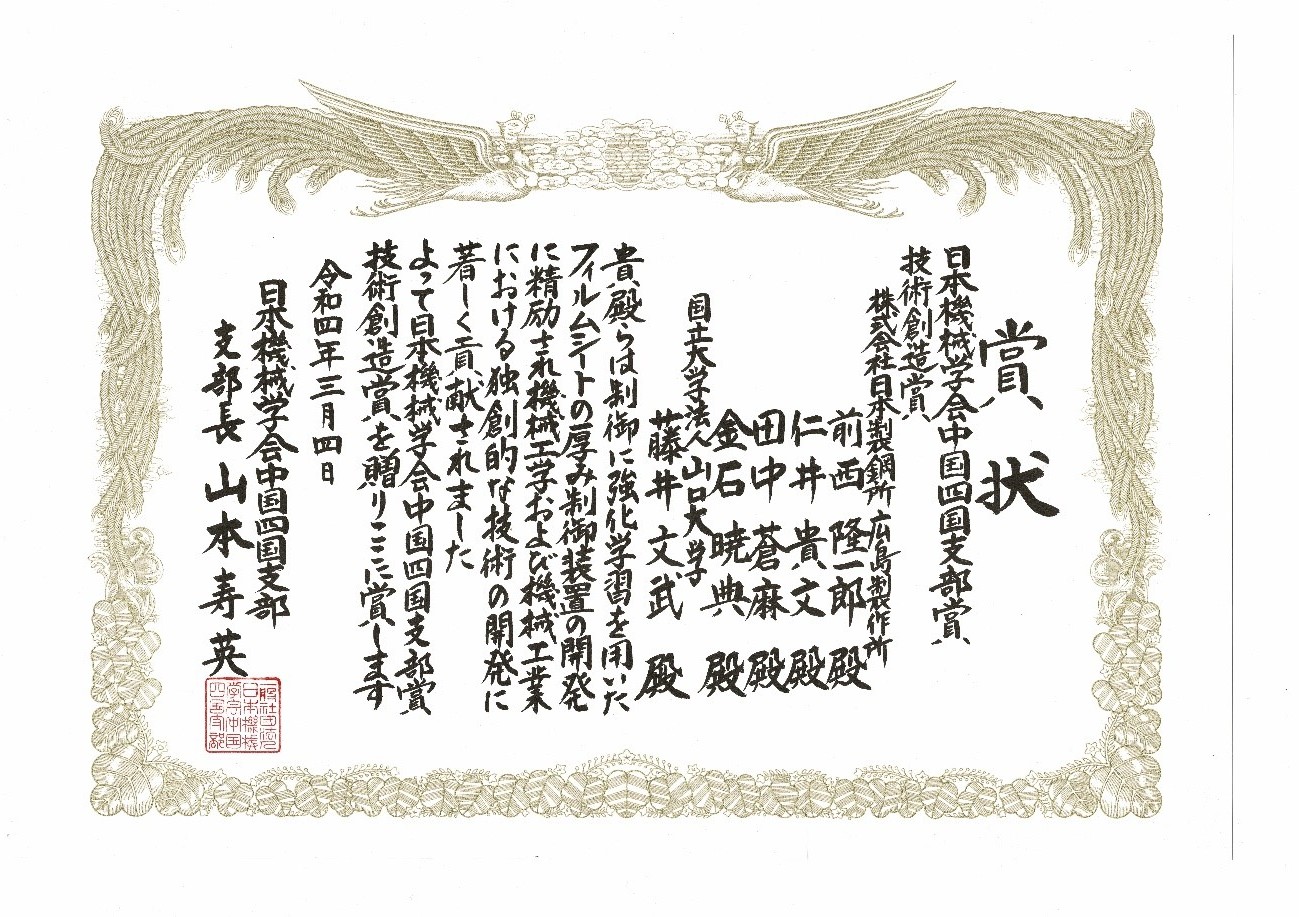 賞状
日本機械学会中国四国支部賞
技術創造賞
株式会社日本製鋼所 広島製作所
前西 隆一郎 殿
仁井 貴文 殿
田中 蒼麻 殿
金石 暁典 殿
国立大学法人 山口大学
藤井 文武 殿
貴殿らは制御に強化学習を用いた
フィルムシートの厚み制御装置の開発
に精励され機械工学および機械工業
における独創的な技術の開発に
著しく貢献されました
よって日本機械学会中国四国支部賞
技術創造賞を贈りここに賞します
令和四年三月四日
日本機械学会中国四国支部
支部長 山本寿英
一般社団法人
日本機械
学会中国
四国支部